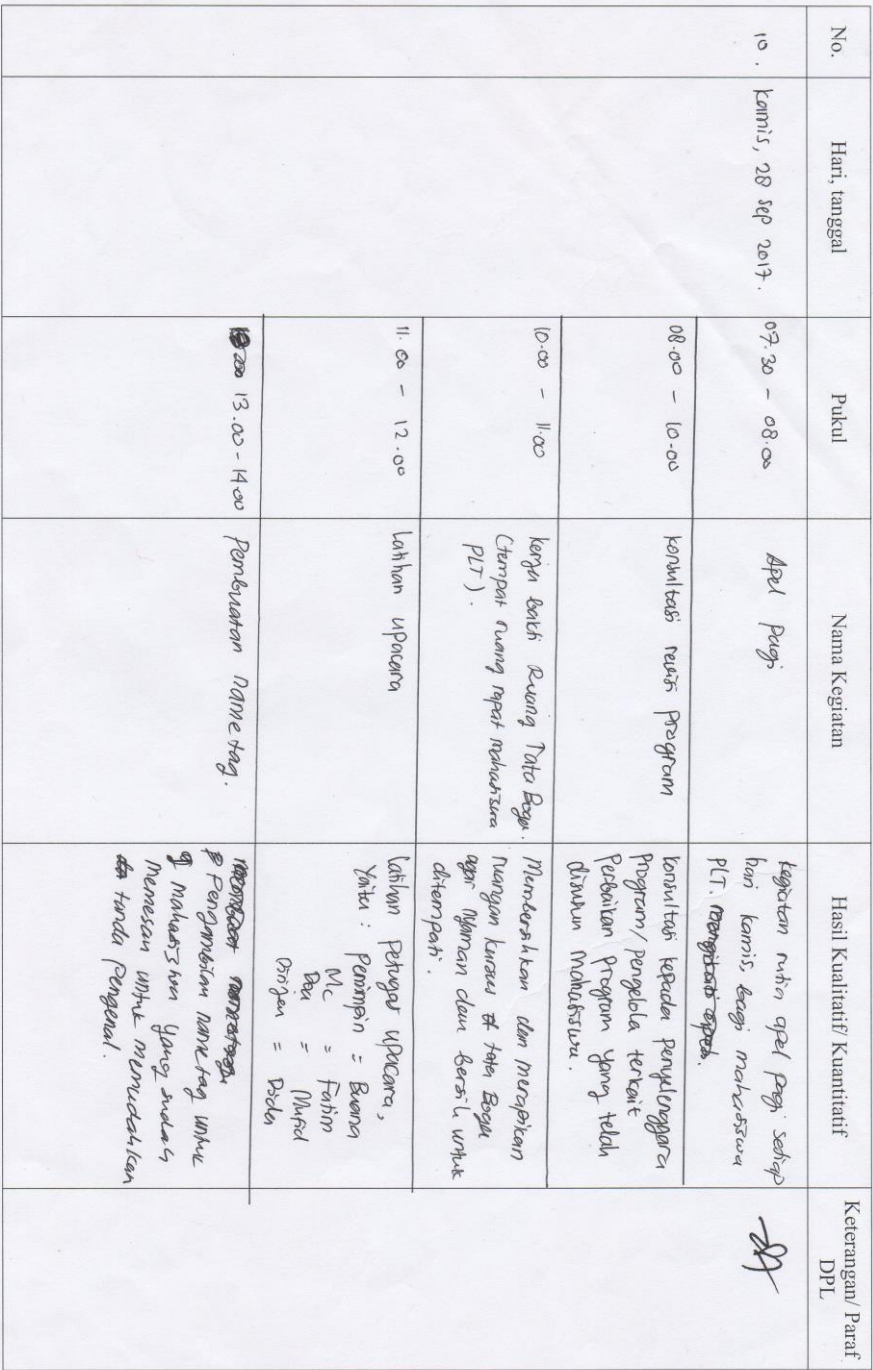 No.
Hari, tanggal
Pukul
Nama Kegiatan
Hasil Kualitatif/ Kuantitatif
Keterangan/ Paraf
DPL
10.
Kamis, 28 Sep 2017.
07.30 - 08.00
Apel pagi
Kegiatan rutin apel pagi setiap
hari kamis, bagi mahasiswa
PLT.
08.00 - 10.00
Konsultasi revisi program
Konsultasi kepada penyelenggara
Program/ pengelola terkait
Perbaikan program yang telah
disusun mahasiswa.
10.00 - 11.00
Kerja bakti Ruang Tata Boga.
(tempat ruang rapat mahasiswa
PLT).
Membersihkan dan merapikan
ruangan kursus tata Boga
agar nyaman dan bersih untuk
ditempati.
11.00 - 12.00
Latihan upacara
Latihan petugas upacara,
Yaitu : pemimpin = Buana
Mc = Fatim
Doa = Mufid
Dirijen =
13.00 - 14.00
Pembuatan nametag.
Pengambilan nametag untuk
mahasiswa yang sudah
memesan untuk memudahkan
tanda pengenal.